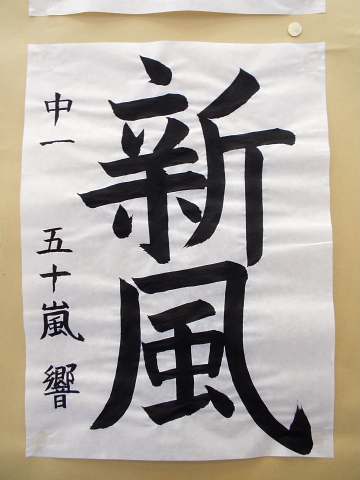 新風
中一 五十嵐 響